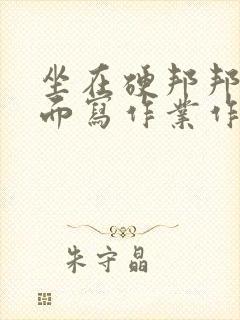 坐在硬邦邦
而寫作業作
朱守晶